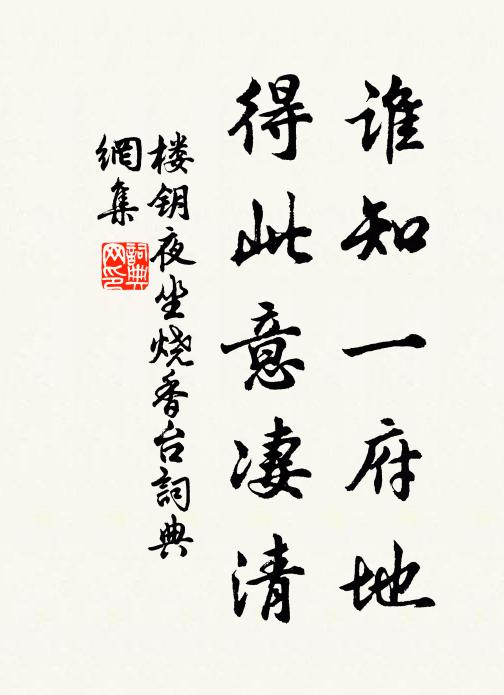 谁知一府地
得此意凄清
楼钥夜坐烧香台詞典
網集
詞典网印